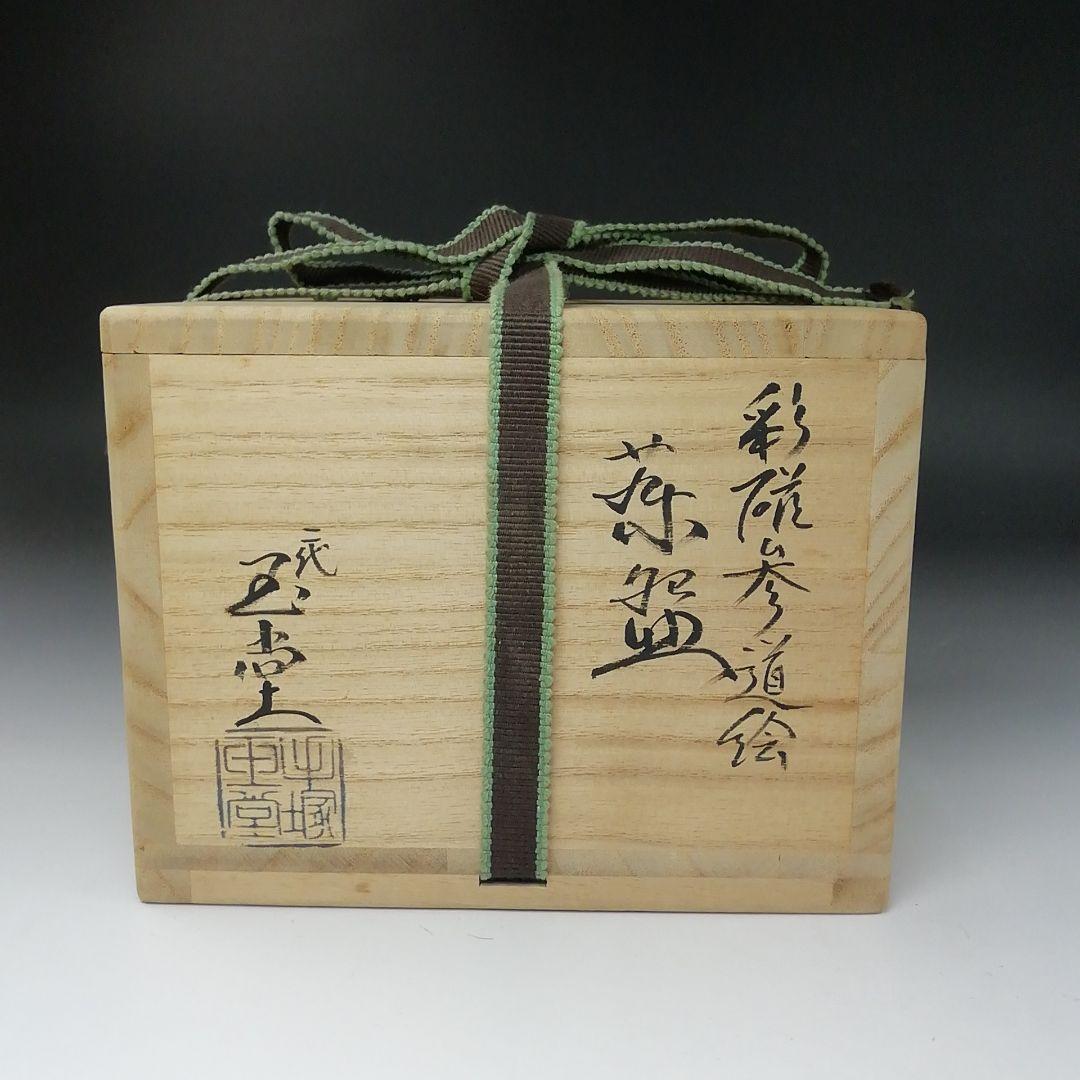 彩磁参道絵
茶盌
二代
玉堂
手塚
玉堂